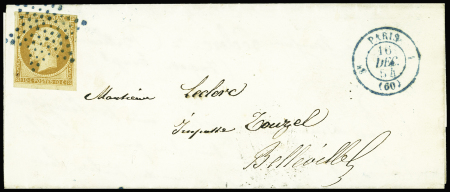 PARIS
16
DEC
54
(60)
Monsieur Leclerc
Impasse Touzel
Belleville